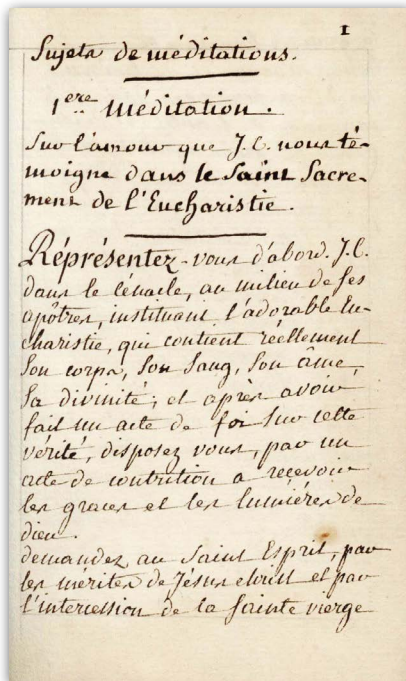 I
Sujets de méditations.
1ere méditation.
Sur l'amour que J. C. nous té-
moigne dans le Saint Sacre-
ment de l'Eucharistie.
Réprésentez-vous d'abord. J. C.
dans le cénacle, au milieu de ses
apôtres, instituant l'adorable Eu-
charistie, qui contient réellement
son corps, son sang, son âme,
sa divinité; et après avoir
fait un acte de foi sur cette
vérité, disposez vous, par un
acte de contrition a recevoir
les graces et les lumiéres de
dieu.
demandez au Saint Esprit, par
les mérites de Jésus christ et par
l'intercession de la sainte vierge